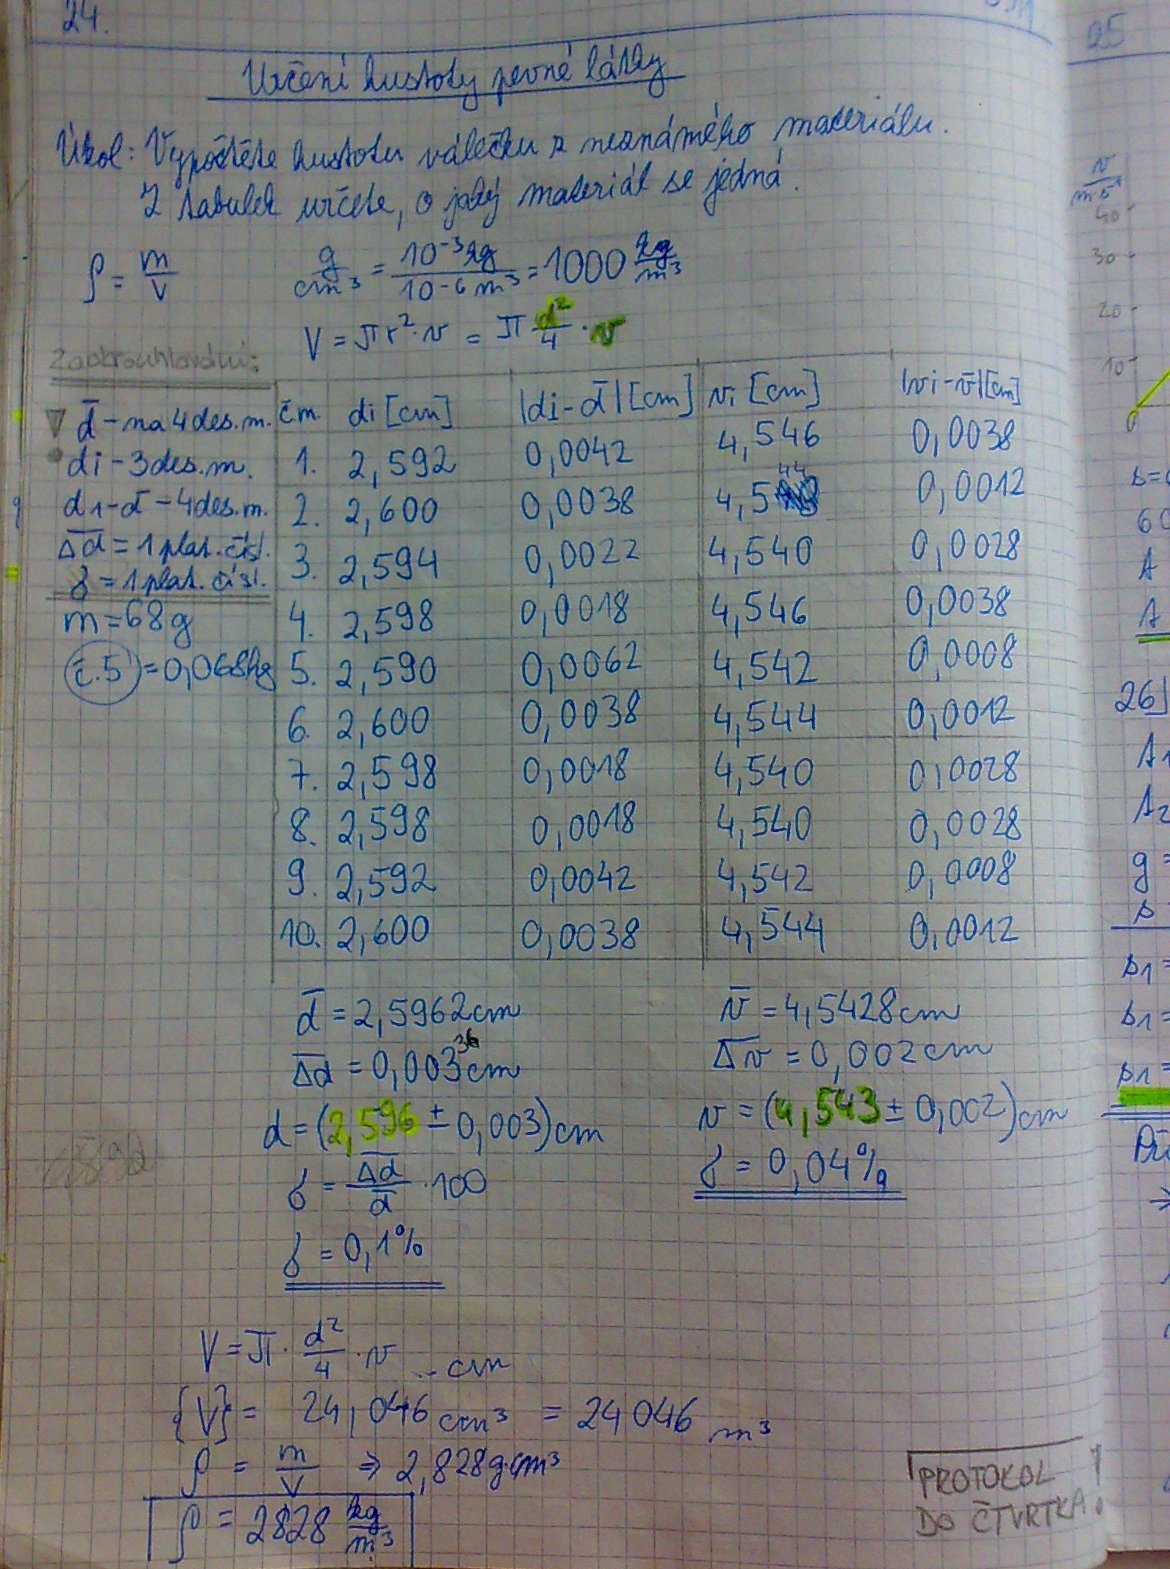 24.
Určení hustoty pevné látky
Úkol: Vypočtěte hustotu válečku z neznámého materiálu.
Z tabulek určete, o jaký materiál se jedná.
ρ = m/V   g/cm³ = 10⁻³kg/10⁻⁶m³ = 1000 kg/m³
V = πr²·v = π d²/4 · v
Zaokrouhlování:
d̄ - na 4 des. m.
di - 3 des. m.
d1 - d̄ - 4 des. m.
Δ̄d̄ = 1 plat. čísl.
δ = 1 plat. čísl.
m = 68g
č.5 = 0,068kg
č.m. di [cm] |di - d̄| [cm] vi [cm] |vi - v̄| [cm]
1. 2,592 0,0042 4,546 0,0038
2. 2,600 0,0038 4,544 0,0012
3. 2,594 0,0022 4,540 0,0028
4. 2,598 0,0018 4,546 0,0038
5. 2,590 0,0062 4,542 0,0008
6. 2,600 0,0038 4,544 0,0012
7. 2,598 0,0018 4,540 0,0028
8. 2,598 0,0018 4,540 0,0028
9. 2,592 0,0042 4,542 0,0008
10. 2,600 0,0038 4,544 0,0012
d̄ = 2,5962cm
Δ̄d̄ = 0,00336cm
d = (2,596 ± 0,003)cm
δ = Δ̄d̄/d̄ · 100
δ = 0,1%
v̄ = 4,5428cm
Δ̄v̄ = 0,002cm
v = (4,543 ± 0,002)cm
δ = 0,04%
V = π · d²/4 · v ...cm
{V} = 24,046 cm³ = 24046 m³
ρ = m/V ⇒ 2,828g·cm³
ρ = 2828 kg/m³
PROTOKOL
DO ČTVRTKA!
25
v
m·s⁻¹
40
30
20
10
0
s=
60
A
A
26)
A1
A2
g =
s
s1 =
s1 =
s1 =